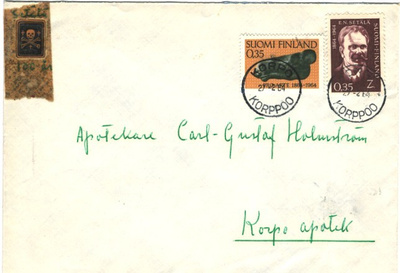 SUOMI FINLAND
0.35
1864-1964
E.N. SETÄLÄ
1864 1964
SUOMI-FINLAND
0.35
KORPO
KORPPOO
KORPO
KORPPOO
Apotekare Carl-Gustaf Holmström
Korpo apotek